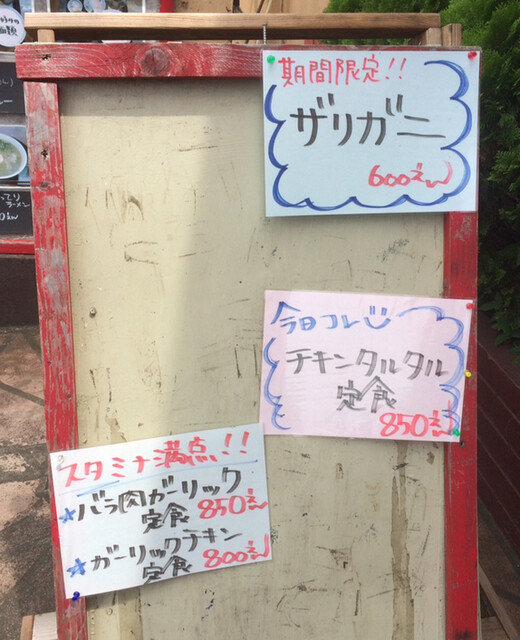 期間限定!!
ザリガニ
600えん
今日コレ
チキンタルタル
定食
850えん
スタミナ満点!!
★バラ肉ガーリック
定食 850えん
★ガーリックチキン
定食 800えん